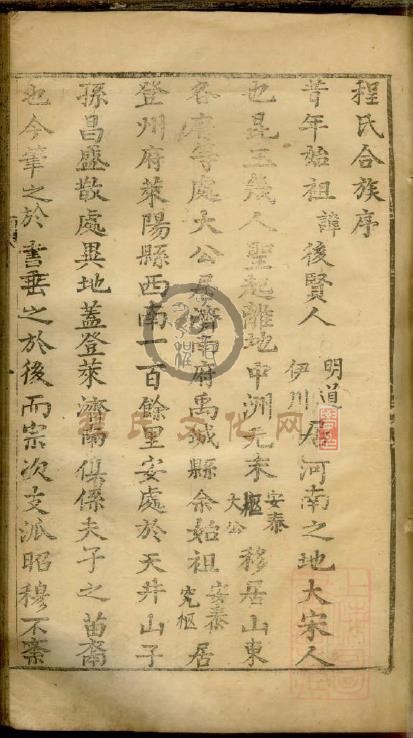 程氏合族序
昔年始祖諱後賢人明道伊川居河南之地大宋人
也昆玉幾人聖起雒地中洲元末安泰大公樞移居山東
各府等處大公居濟南府禹城縣余始祖安泰究樞居
登州府萊陽縣西南一百餘里安處於天井山子
孫昌盛散處異地蓋登萊濟南俱係夫子之苗裔
也今筆之於書垂之於後而宗次支派昭穆不紊
氏文化网